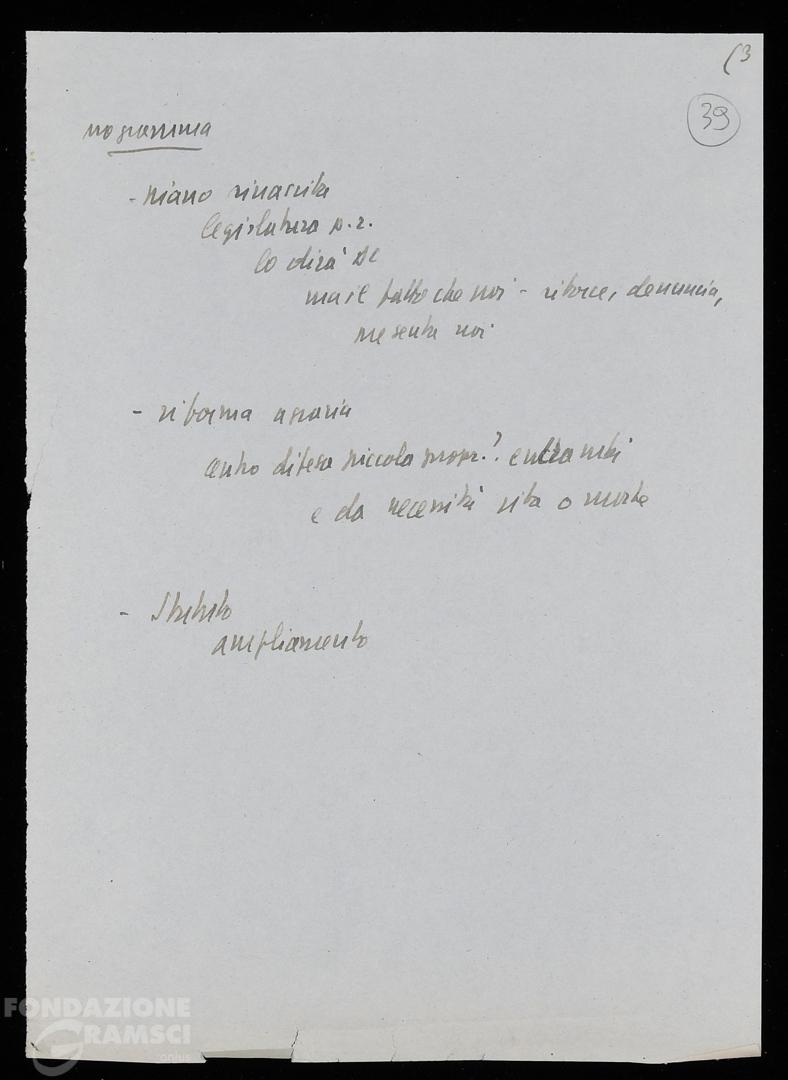 (3
39
programma
- piano rinascita
legislatura p.r.
lo dirà DC
ma il fatto che noi - riforce, denuncia,
presenta noi
- riforma agraria
centro difesa piccola propr.? entrambi
e da necessità vita o morte
- Statuto
ampliamento
FONDAZIONE
GRAMSCI
onlus